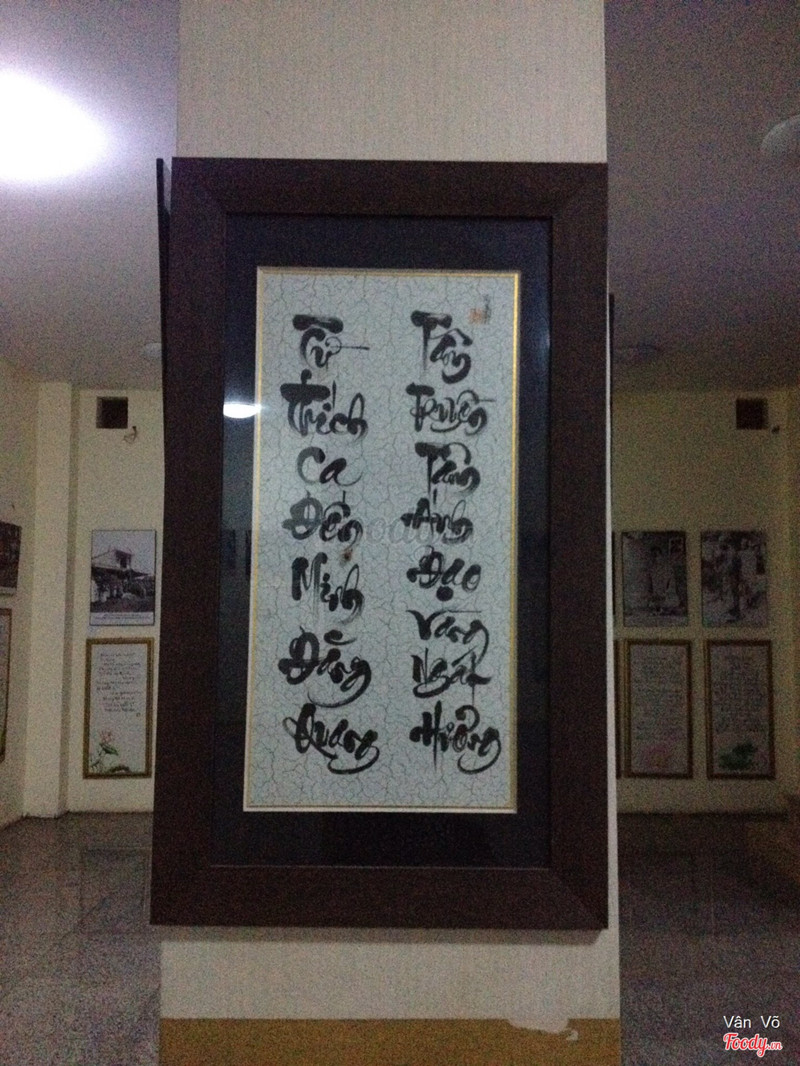 Từ
Thích
Ca
Đến
Minh
Đăng
Quang
Tâm
Truyền
Tâm
Ánh
Đạo
Vàng
Ngát
Hương
Vân Võ
Foody.vn